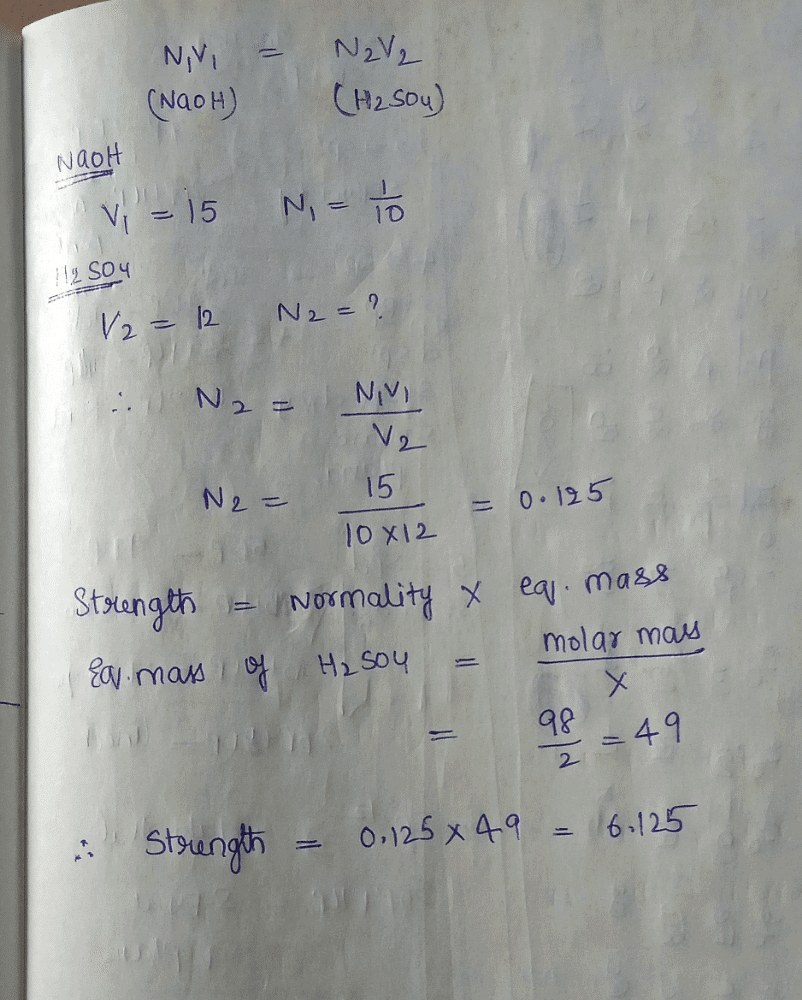 N₁V₁ = N₂V₂
(NaOH) (H₂SO₄)
NaOH
V₁ = 15 N₁ = 1/10
H₂SO₄
V₂ = 12 N₂ = ?
∴ N₂ = N₁V₁/V₂
N₂ = 15/10×12 = 0.125
Strength = Normality × eq. mass
Eq. mass of H₂SO₄ = molar mass/x
= 98/2 = 49
∴ Strength = 0.125 × 49 = 6.125